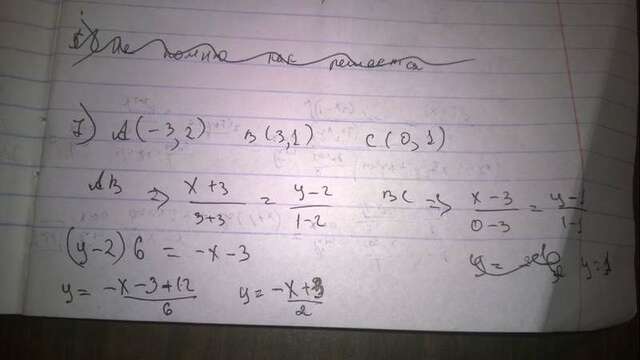 не помню как решается
7) A(-3,2) B(3,1) C(0,1)
AB => (x+3)/(3+3) = (y-2)/(1-2) BC => (x-3)/(0-3) = (y-1)/(1-1)
(y-2) 6 = -x-3
y = y=1
y = (-x-3+12)/6 y = (-x+3)/2